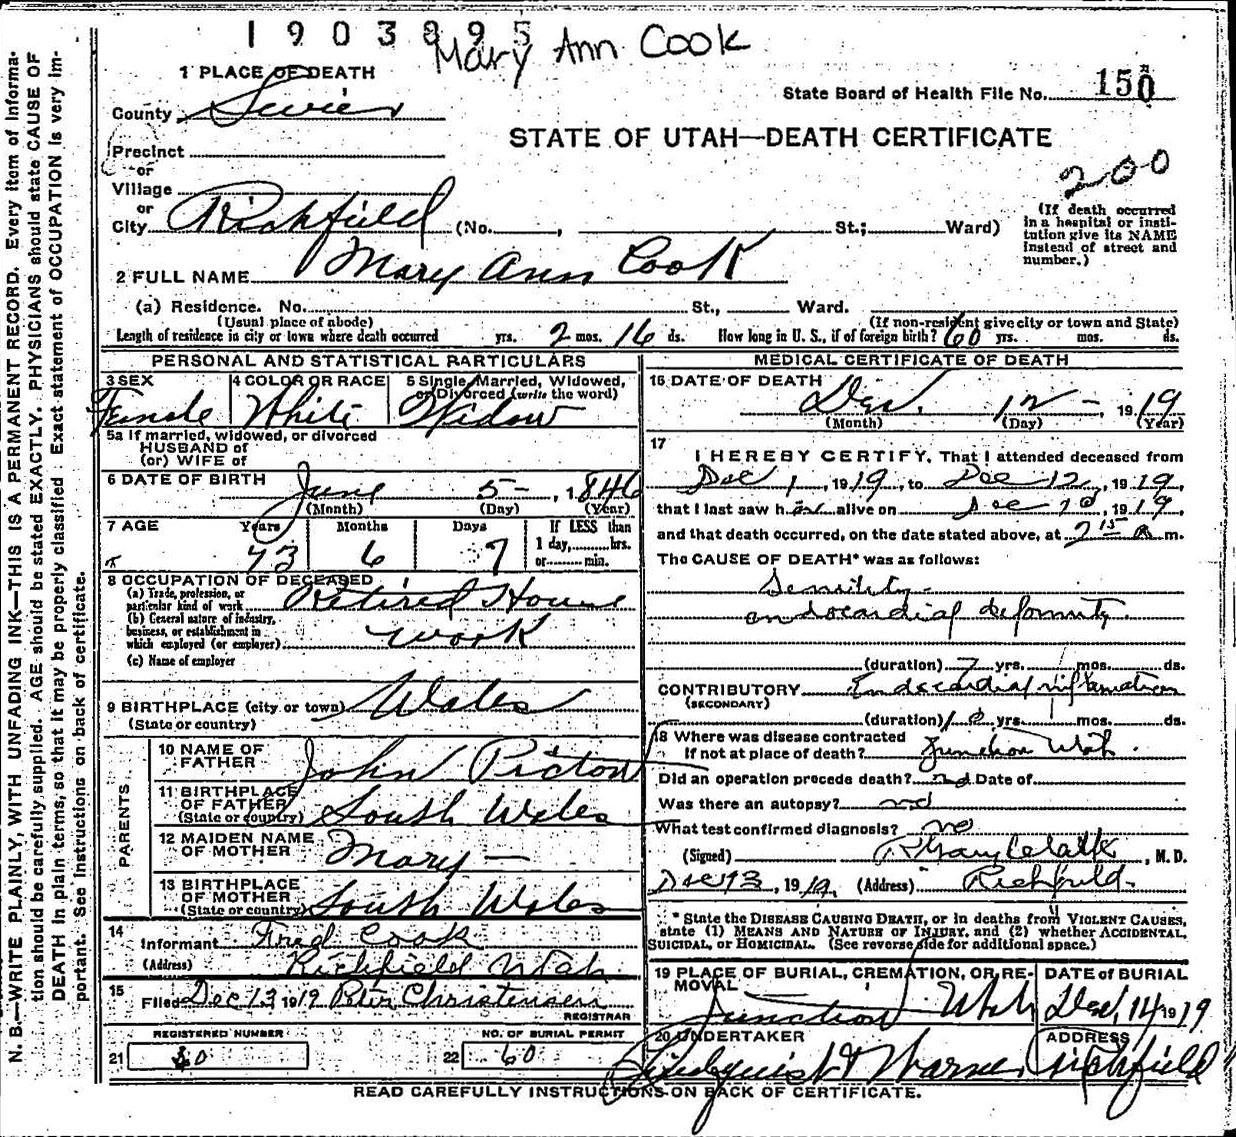 1903895
Mary Ann Cook
1 PLACE OF DEATH
County Sevier
State Board of Health File No. 150
STATE OF UTAH—DEATH CERTIFICATE
Precinct
or
Village
or
200
City Richfield (No. , St.; Ward)
(If death occurred in a hospital or institution give its NAME instead of street and number.)
2 FULL NAME Mary Ann Cook
(a) Residence. No. St., Ward.
(Usual place of abode) (If non-resident give city or town and State)
Length of residence in city or town where death occurred yrs. 2 mos. 16 ds. How long in U. S., if of foreign birth? 60 yrs. mos. ds.
PERSONAL AND STATISTICAL PARTICULARS
3 SEX 4 COLOR OR RACE 5 Single, Married, Widowed, or Divorced (write the word)
Female White Widow
5a If married, widowed, or divorced
HUSBAND of
(or) WIFE of
6 DATE OF BIRTH June 5 , 1846
(Month) (Day) (Year)
7 AGE Years Months Days If LESS than
73 6 7 1 day, hrs.
or min.
8 OCCUPATION OF DECEASED
(a) Trade, profession, or particular kind of work Retired House
(b) General nature of industry, business, or establishment in which employed (or employer) work
(c) Name of employer
9 BIRTHPLACE (city or town) Wales
(State or country)
PARENTS
10 NAME OF FATHER John Picton
11 BIRTHPLACE OF FATHER (State or country) South Wales
12 MAIDEN NAME OF MOTHER Mary —
13 BIRTHPLACE OF MOTHER (State or country) South Wales
14 Informant Fred Cook
(Address) Richfield Utah
15 Filed Dec 13 1919 Peter Christensen
REGISTRAR
REGISTERED NUMBER NO. OF BURIAL PERMIT
21 60 22 60
MEDICAL CERTIFICATE OF DEATH
16 DATE OF DEATH Dec. 12 - , 1919
(Month) (Day) (Year)
17
I HEREBY CERTIFY, That I attended deceased from
Dec 1, 1919, to Dec 12, 1919,
that I last saw her alive on Dec , 1919,
and that death occurred, on the date stated above, at 2 15 a m.
The CAUSE OF DEATH* was as follows:
Senility-
endocardial deformity.
(duration) 7 yrs. mos. ds.
CONTRIBUTORY Endocardial inflamation
(SECONDARY)
(duration) yrs. mos. ds.
18 Where was disease contracted
If not at place of death? Junction Utah.
Did an operation precede death? no Date of
Was there an autopsy? no
What test confirmed diagnosis? no
(Signed) , M. D.
Dec 13, 1919. (Address) Richfield.
* State the DISEASE CAUSING DEATH, or in deaths from VIOLENT CAUSES,
state (1) MEANS AND NATURE OF INJURY, and (2) whether ACCIDENTAL,
SUICIDAL, or HOMICIDAL. (See reverse side for additional space.)
19 PLACE OF BURIAL, CREMATION, OR REMOVAL DATE of BURIAL
Junction Utah Dec 14 1919
20 UNDERTAKER ADDRESS
Richfield
READ CAREFULLY INSTRUCTIONS ON BACK OF CERTIFICATE.
N. B.—WRITE PLAINLY, WITH UNFADING INK—THIS IS A PERMANENT RECORD. Every item of informa-
tion should be carefully supplied. AGE should be stated EXACTLY. PHYSICIANS should state CAUSE OF
DEATH in plain terms, so that it may be properly classified. Exact statement of OCCUPATION is very im-
portant. See instructions on back of certificate.